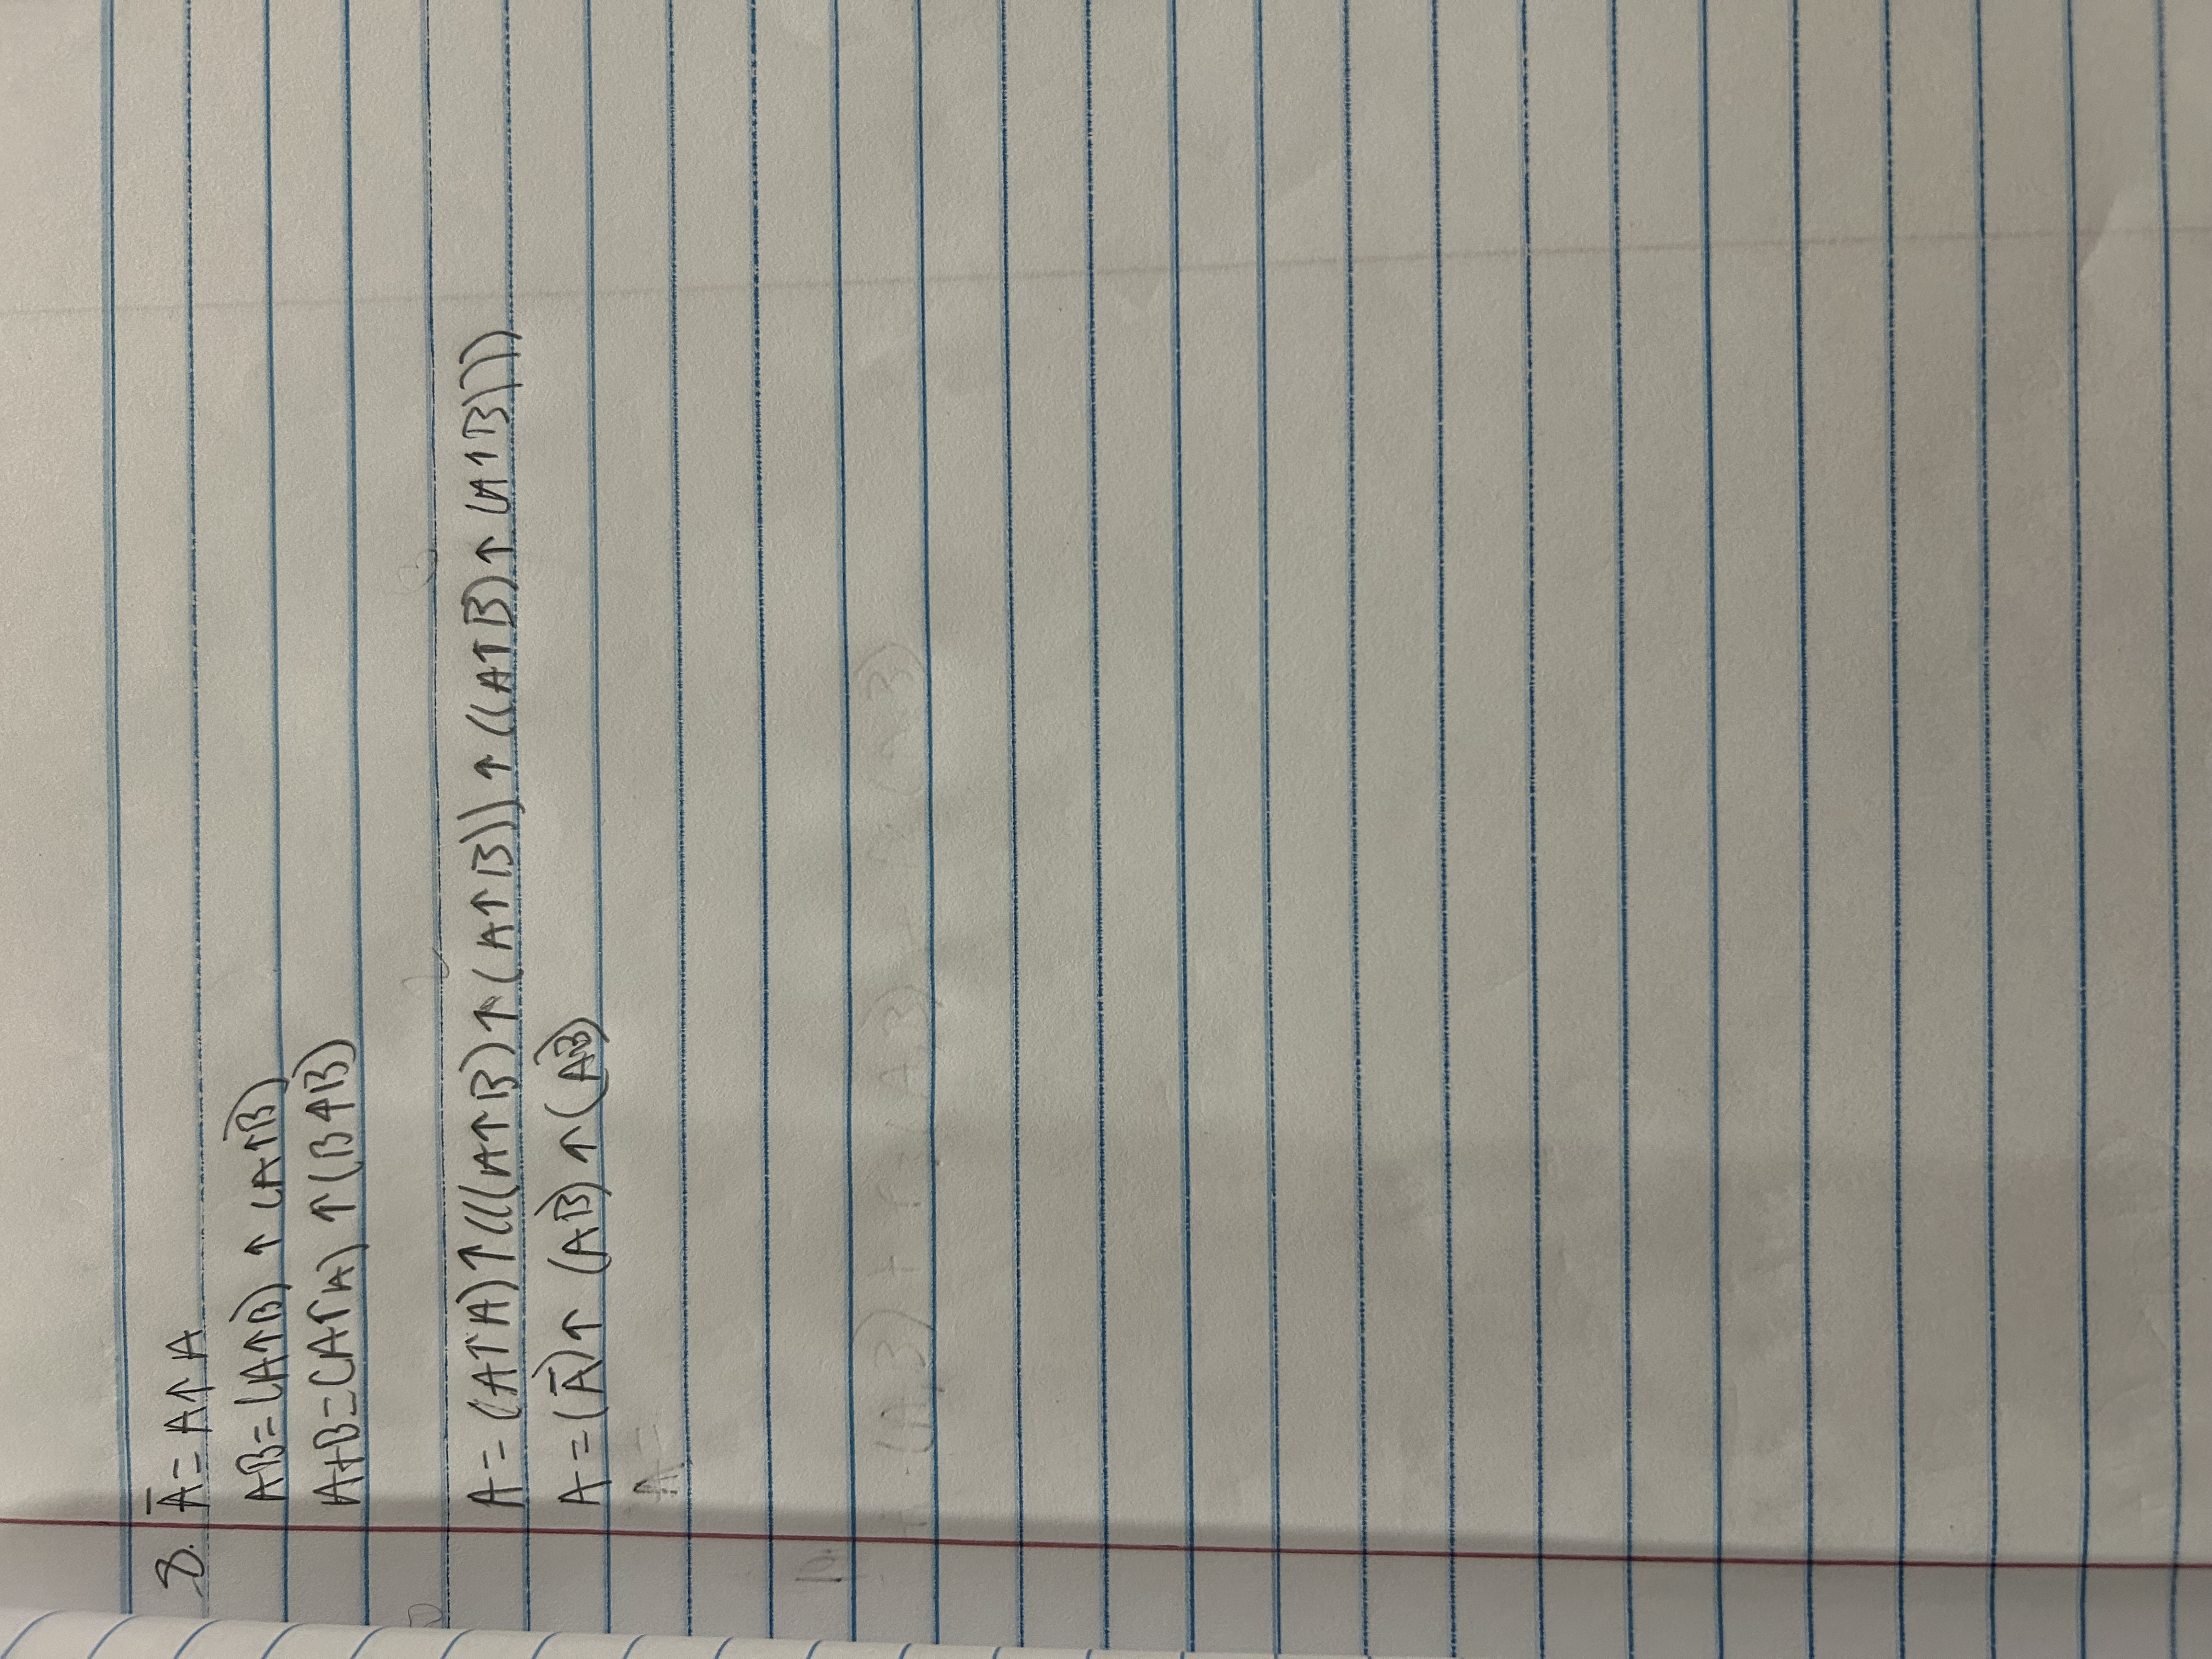 8. Ā = A↑A
AB = (A↑B) ↑ (A↑B)
A+B = (A↑A) ↑ (B↑B)
A = (A↑A)↑(((A↑B)↑(A↑B))↑((A↑B)↑(A↑B)))
A = (Ā)↑ (AB)↑(AB)
A =
10.